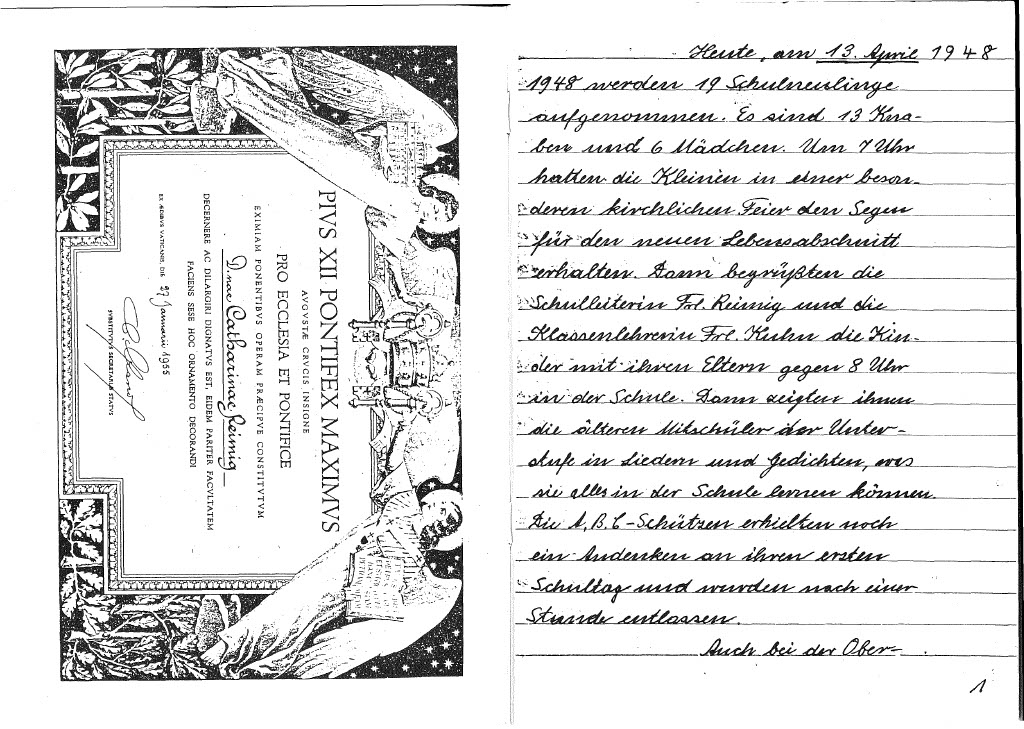 PIVS XII PONTIFEX MAXIMVS
AVGVSTÆ CRVCIS INSIGNE
PRO ECCLESIA ET PONTIFICE
EXIMIAM PONENTIBVS OPERAM PRÆCIPVE CONSTITVTVM
D.nae Catharinae Reimig
DECERNERE AC DILARGIRI DIGNATVS EST, EIDEM PARITER FACVLTATEM
FACIENS SESE HOC ORNAMENTO DECORANDI
EX ÆDIBVS VATICANIS, DIE 27 Januarii 1955
SVBSTITVTVS SECRETARIÆ STATVS
Heute, am 13. April 1948
1948 werden 19 Schulneulinge
aufgenommen. Es sind 13 Kna-
ben und 6 Mädchen. Um 7 Uhr
hatten die Kleinen in einer beson-
deren kirchlichen Feier den Segen
für den neuen Lebensabschnitt
erhalten. Dann begrüßten die
Schulleiterin Frl. Reimig und die
Klassenlehrerin Frl. Kuhn die Kin-
der mit ihren Eltern gegen 8 Uhr
in der Schule. Dann zeigten ihnen
die älteren Mitschüler der Unter-
stufe in Liedern und Gedichten, was
sie alles in der Schule lernen können.
Die A, B, C-Schützen erhielten noch
ein Andenken an ihren ersten
Schultag und wurden nach einer
Stunde entlassen.
Auch bei der Ober-
1